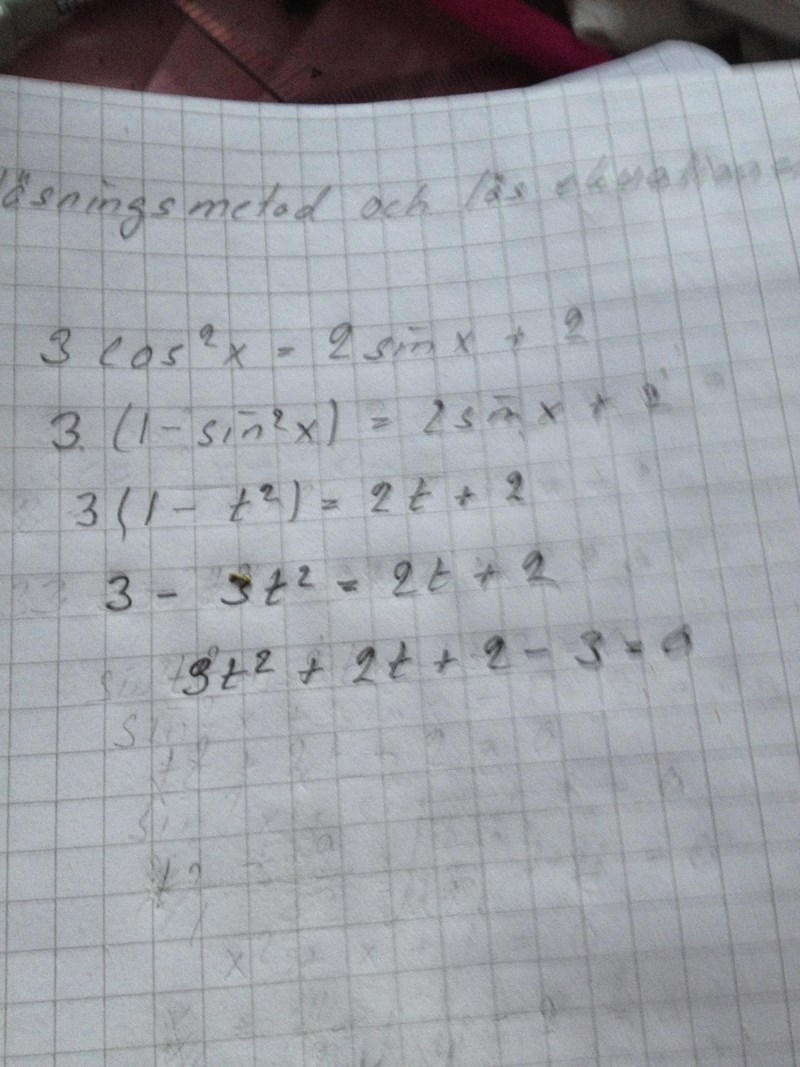 lösningsmetod och lös ekvationen
3 cos²x = 2 sin x + 2
3. (1 - sin²x) = 2 sin x + 2
3(1 - t²) = 2t + 2
3 - 3t² = 2t + 2
3t² + 2t + 2 - 3 = 0